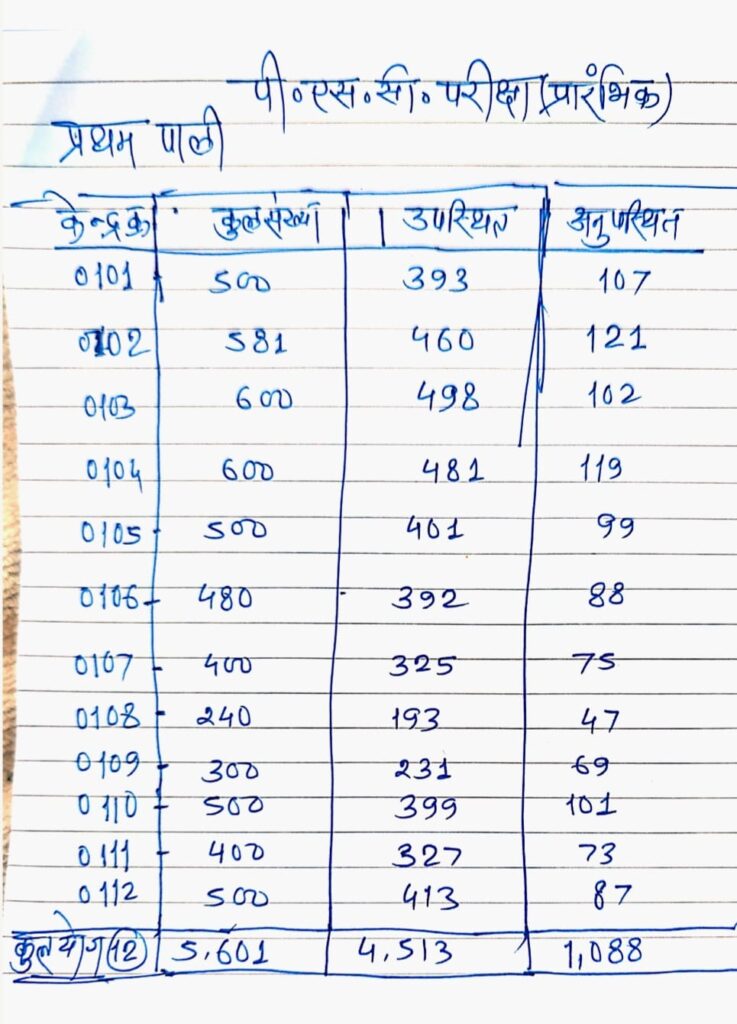 पी.एस.सी. परीक्षा (प्रारंभिक)
प्रथम पाली
केन्द्रक्र. कुल संख्या उपस्थित अनुपस्थित
0101 500 393 107
0102 581 460 121
0103 600 498 102
0104 600 481 119
0105 500 401 99
0106 480 392 88
0107 400 325 75
0108 240 193 47
0109 300 231 69
0110 500 399 101
0111 400 327 73
0112 500 413 87
कुल योग 12 5,601 4,513 1,088